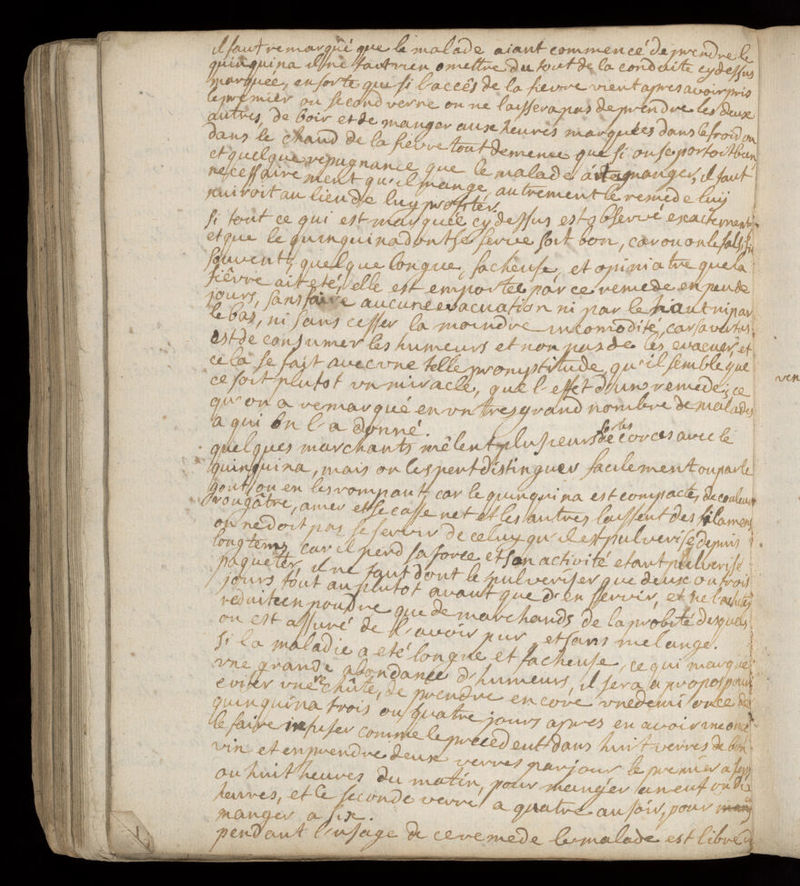 il faut remarqué que le malade aiant commencé de prendre le
quinquina il ne faut rien omettre du tout de la conduite cy dessus
marquée, en sorte que si l'accês de la fievre vient apres avoir pris
le premier ou second verre on ne laissera pas de prendre les deux
autres, de boir et de manger aux heures marquées dans le froid ou
dans le chaud de la fievre tout de meme que si on se portoit bien
et quelque repugnance que le malade ait a manger, il faut
necessairement qu'il mange, autrement le remede luy
nuiroit au lieu de luy proffiter
Si tout ce qui est marquée cy dessus est observé exactement
et que le quinquina dont se serve soit bon, car on le falsifi
souvent, quelque longue, facheuse, et opiniatre que la
fiêvre ait eté, elle est emportée par ce remede en peu de
jours, sans faire aucune evacuation ni par le haut ni par
le bas, ni sans cesser la moindre incomodité, car sa vertu
est de consumer les humeurs et non pas de les evacuer, et
cela se fait avec une telle promptitude, qu'il semble que
ce soit plutot un miracle, que l'effet d'un remede; ce
qu'on a remarqué en un tres grand nombre de malades
a qui on l'a donné.
quelques marchants mêlent plusieurs sortes d'ecorces avec le
quinquina, mais on les peut distinguer facilement ou par le
gout, ou en les rompant, car le quinquina est compacte, de couleur
rougâtre, amer et se casse net et les autres laissent des filamens
on ne doit pas se servir de celuy qu'il est pulverisé depuis
longtems, car il perd sa force et son activité etant pulverisé
paqueter, il ne faut dont le pulveriser que deux ou trois
jours tout au plutot avant que d'en servir, et ne l'acheter
reduite en poudre que de marchands de la probité desquels
on est assuré de l'avoir pur, et sans melange.
Si la maladie a eté longue et facheuse, ce qui marque
une grande abondance d'humeurs, il sera a propos pour
eviter une rechûte, de prendre encore une demi once de
quinquina trois ou quatre jours apres en avoir une once
le faire infuser comme le precedent dans huit verres de bon
vin et en prendre deux verres par jour le premier a sept
ou huit heures du matin, pour manger a neuf ou dix
heures, et le seconde verre a quatre au soir, pour
manger a six.
pendant l'usage de ce remede le malade est libre
ven